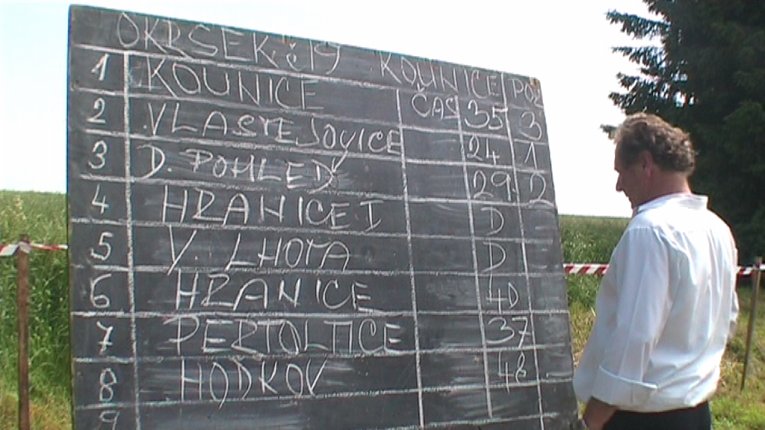 OKRSEK Č 19 KOUNICE
1 KOUNICE ČAS 35 3
2 VLASTEJOVICE 24 1
3 D. POHLEĎ 29 2
4 HRANICE I D
5 V. LHOTA D
6 HRANICE 4D
7 PERTOLTICE 37
8 HODKOV 48
9